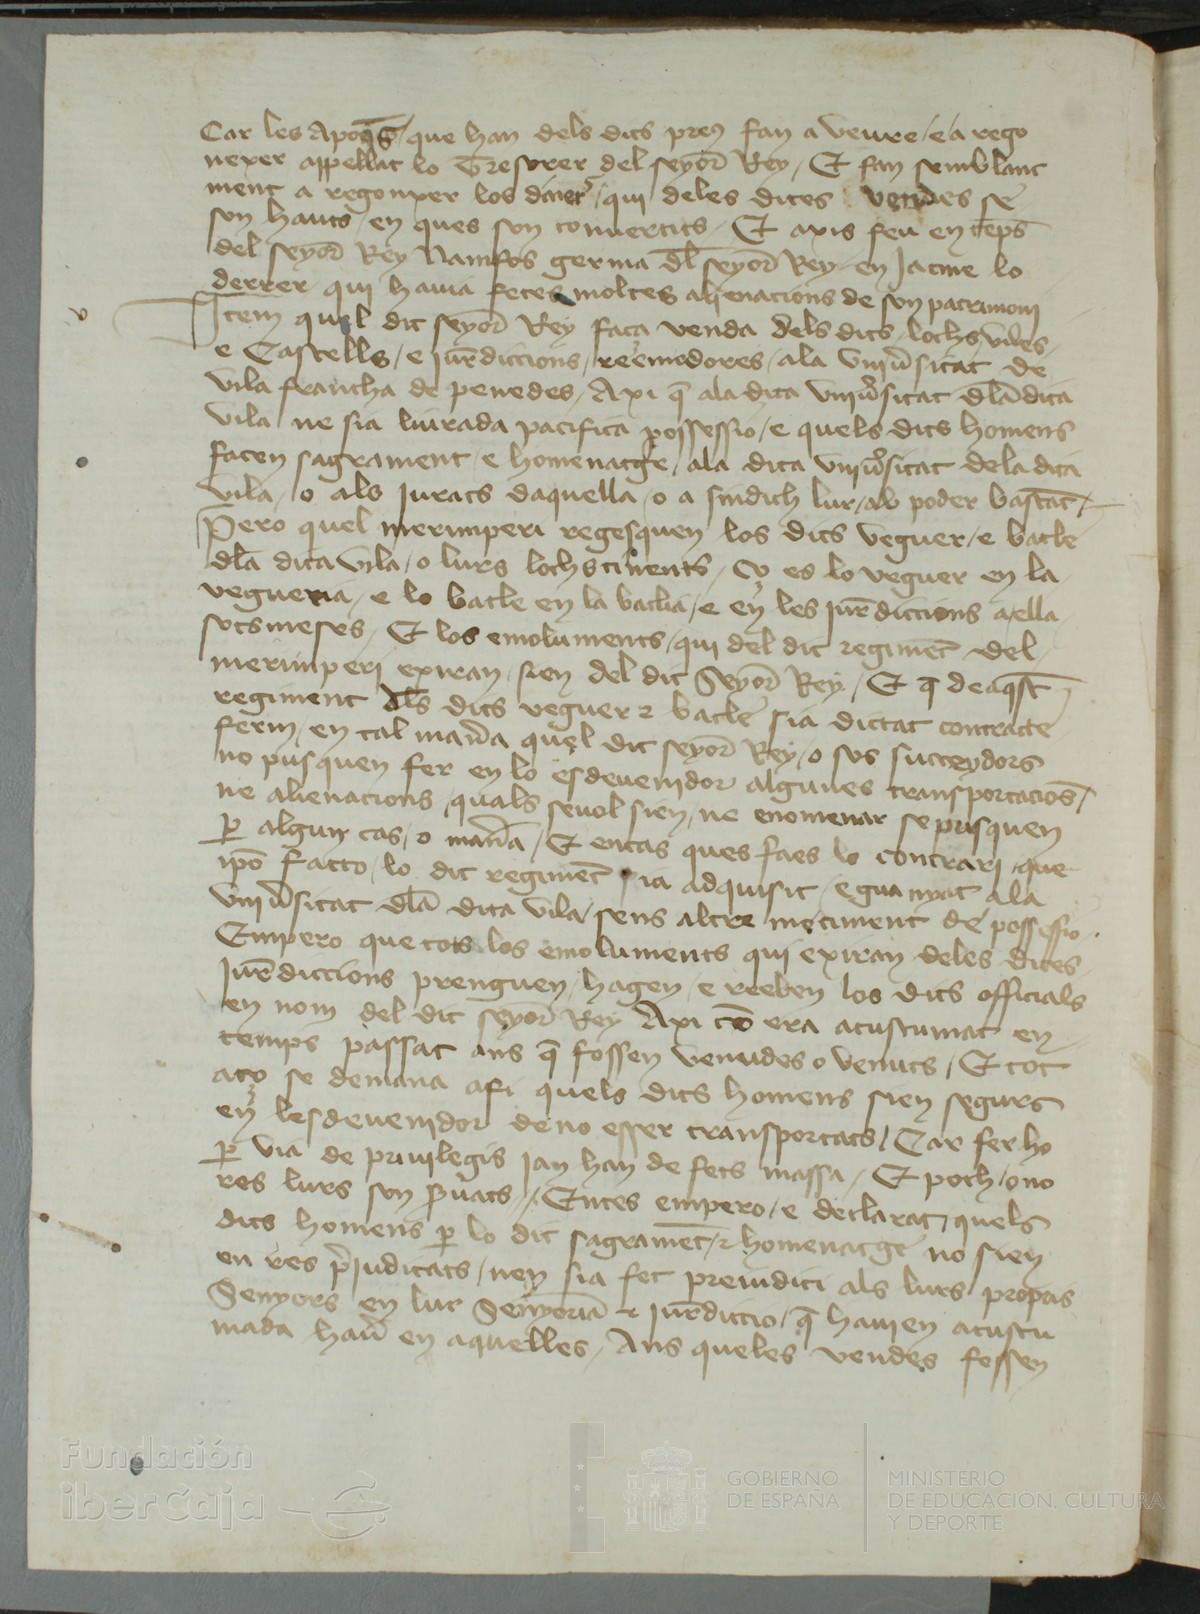 Car les Apoq̄s / que han dels dits preu fan a veure / e a rego
nexer appellat lo Tresorer del seyor Rey / Et fan semblant
ment a regonxer los diners / qui deles dites vendes se
son hauts / en ques son convertits / Et axis feu en temps
del seyor Rey Namfos germa dl̄ seyor Rey en Jacme lo
derrer qui havia fetes moltes alienacions de son patrimoni
Item quel dit seyor Rey faça venda dels dits lochs / viles
e Castells / e jur̄diccions / reemedores / ala Univ̄sitat de
Vila francha de penedes / Axi q̄ ala dita univ̄sitat dl̄a dita
vila ne sia liurada pacifica possessio / e quels dits homens
facen sagrament / e homenatge / ala dita univ̄sitat dela dita
vila / o als Jurats daquella / o a sindich lur / ab poder bastāt /
Pero quel merimperi regesquen los dits veguer / e batle
dl̄a dita vila / o lurs lochstinents / Ço es lo veguer en la
vegueria / e lo batle en la batlia / e en les jur̄diccions a ella
sotsmeses / Et los emoluments / qui del dit regimēt del
merimperi exiran / sien del dit Seyor Rey / Et q̄ de aq̄st
regiment dl̄s dits veguer e batle sia dictat contracte
ferm / en tal man̄a quel dit seyor Rey / o sos succeydors
no pusquen fer en lo esdevenidor algunes transportacioñs /
ne alienacions / quals sevol sien / ne enomenar se pusquen
p̄ algun cas / o man̄a / Et encas ques faes lo contrari / que
ip̄o facto / lo dit regimēt sia adquisit / e guanyat ala
univ̄sitat dl̄a dita vila / sens altre metiment de possessio /
Empero que tots los emoluments qui exiran deles dites
Jur̄diccions prenguen / hagen / e reeben los dits officials
en nom del dit seyor Rey Axi cō era acustumat en
temps passat ans q̄ fossen venudes o venuts / Et tot
aço se demana afi quels dits homens sien segurs
en lesdevenidor deno esser transportats / Car fer ho
p̄ via de privilegis jan han de fets massa / Et poch / o no
res lurs son s̄vats // Entes empero / e declarat / quels
dits homens p̄ lo dit sagramēt / e homenatge no sien
en res p̄judicats / nen sia fet preiudici als lurs propris
Senyors en lur Senyoria e jur̄diccio / q̄ havien acustu
mada hav̄ en aquelles / Ans queles vendes fossen
Fundación
iberCaja
GOBIERNO
DE ESPAÑA
MINISTERIO
DE EDUCACIÓN, CULTURA
Y DEPORTE